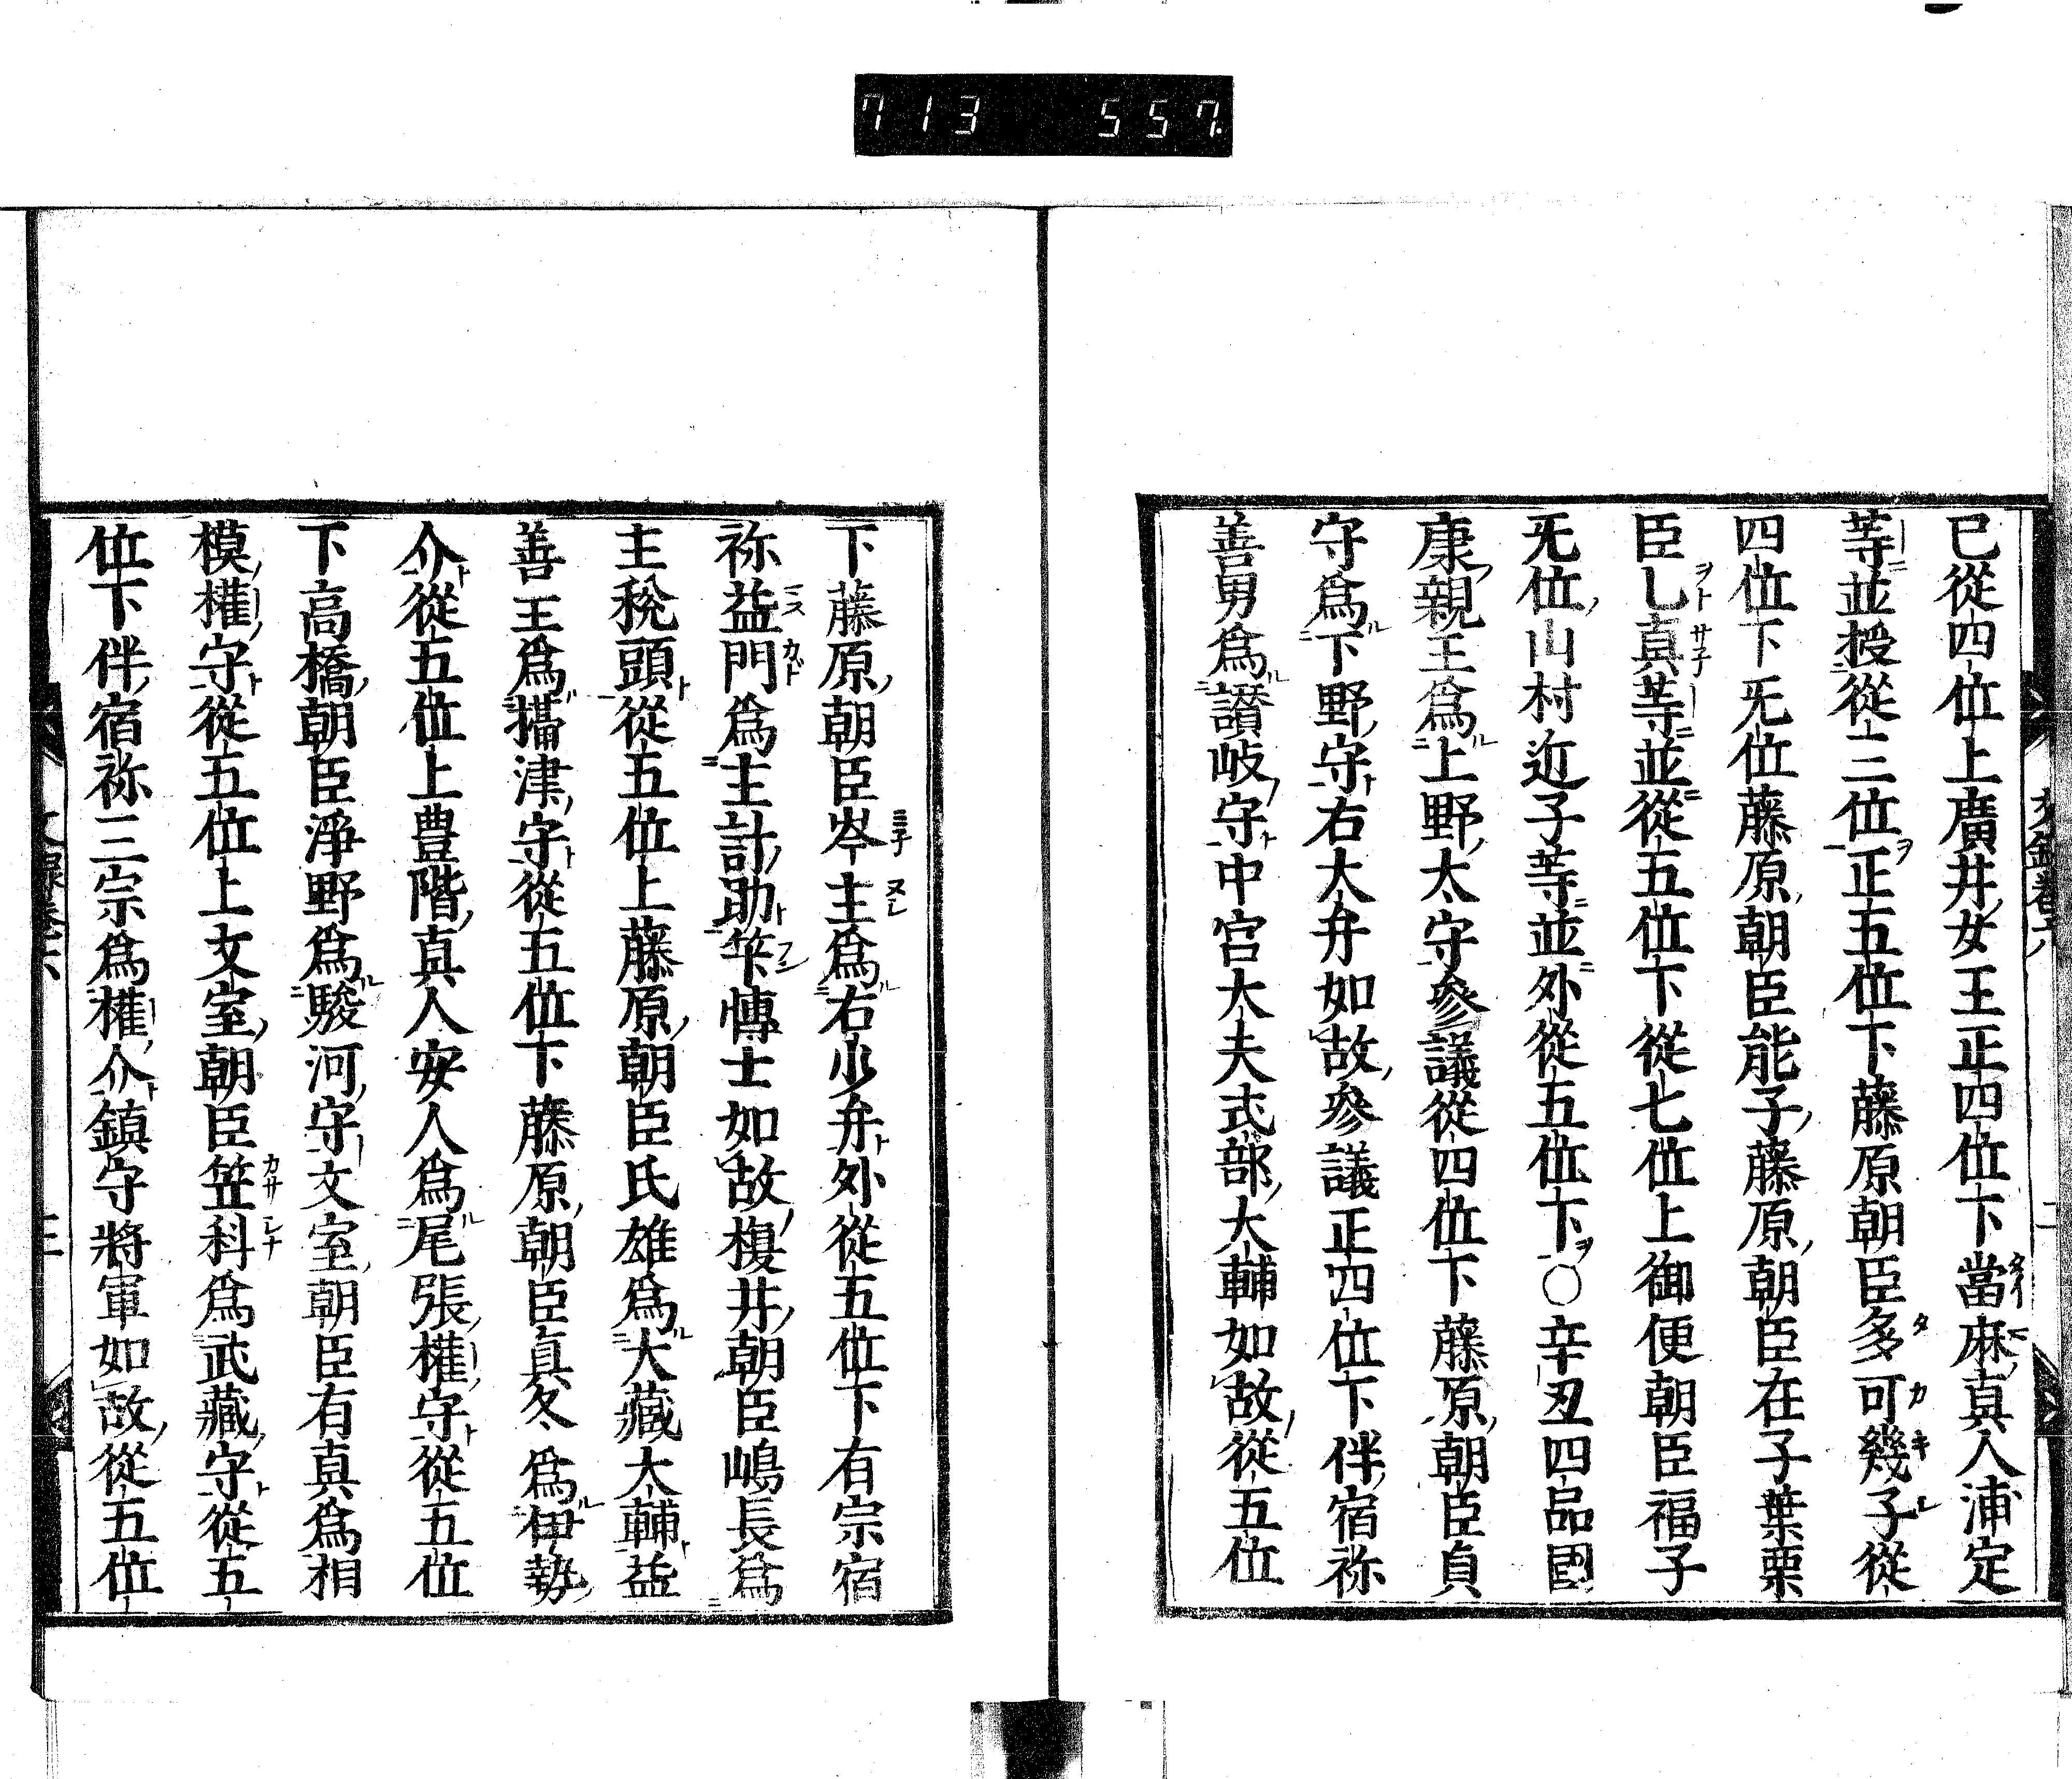 713 557
已從四位上廣井女王正四位下當麻真人浦定
等並授從三位正五位下藤原朝臣多可幾子從
四位下无位藤原朝臣能子藤原朝臣在子葉栗
臣乚真等並從五位下從七位上御使朝臣福子
无位山村近子等並外從五位下○辛丑四品國
康親王爲上野太守參議從四位下藤原朝臣貞
守爲下野守右大弁如故參議正四位下伴宿祢
善男爲讃岐守中宮大夫式部大輔如故從五位
下藤原朝臣岑主爲右少弁外從五位下有宗宿
祢益門爲主計助笇博士如故榎井朝臣嶋長爲
主稅頭從五位上藤原朝臣氏雄爲大藏大輔益
善王爲攝津守從五位下藤原朝臣真冬爲伊勢
介從五位上豊階真人安人爲尾張權守從五位
下高橋朝臣淨野爲駿河守文室朝臣有真爲相
模權守從五位上文室朝臣笠科爲武藏守從五
位下伴宿祢三宗爲權介鎮守將軍如故從五位